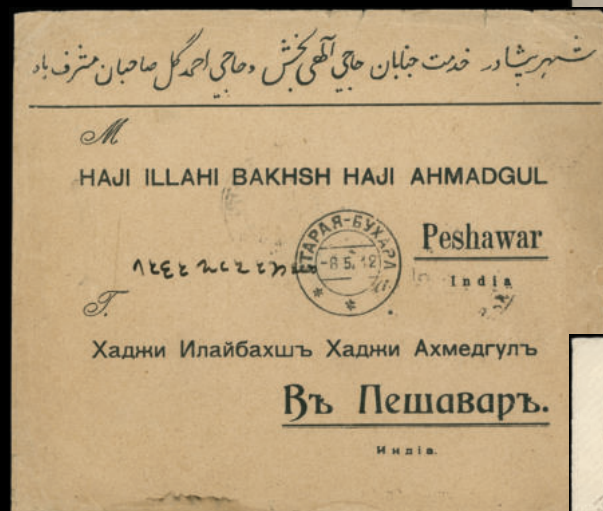 شهر پشاور خدمت جنابان حاجی آلهی بخش و حاجی احمد گل صاحبان مشرف باد
M
HAJI ILLAHI BAKHSH HAJI AHMADGUL
Peshawar
СТАРАЯ-БУХАРА
-8 5. 12
India
Г.
Хаджи Илайбахшъ Хаджи Ахмедгулъ
Въ Пешаваръ.
Индія.